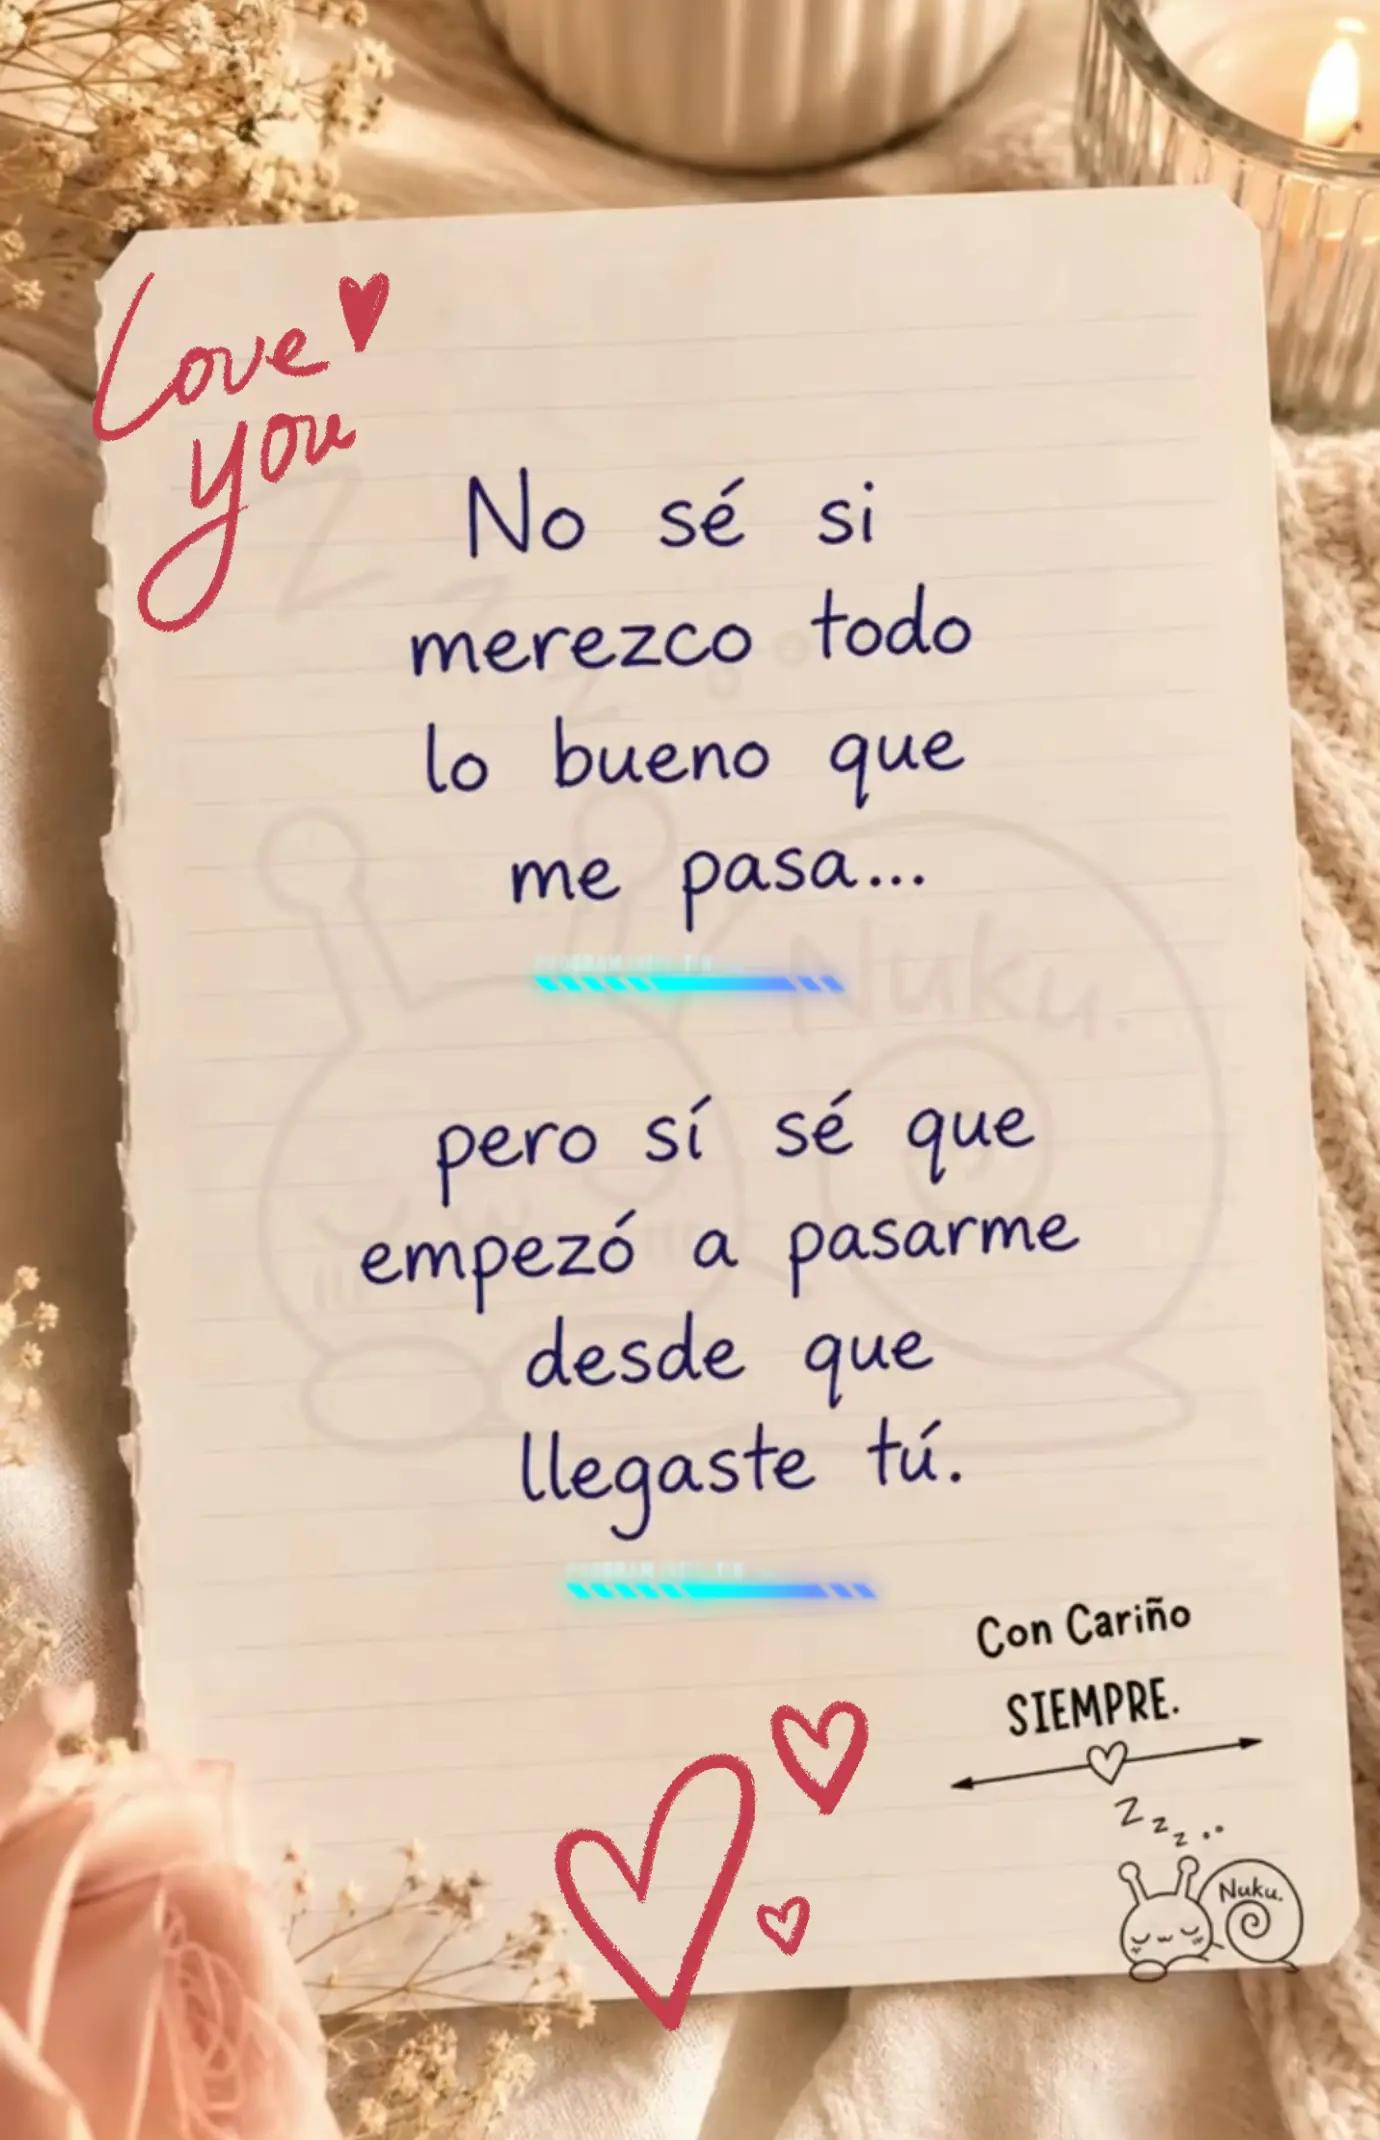 Love
you
No sé si
merezco todo
lo bueno que
me pasa...
Nuku.
pero sí sé que
empezó a pasarme
desde que
llegaste tú.
Con Cariño
SIEMPRE.
z z z..
Nuku.